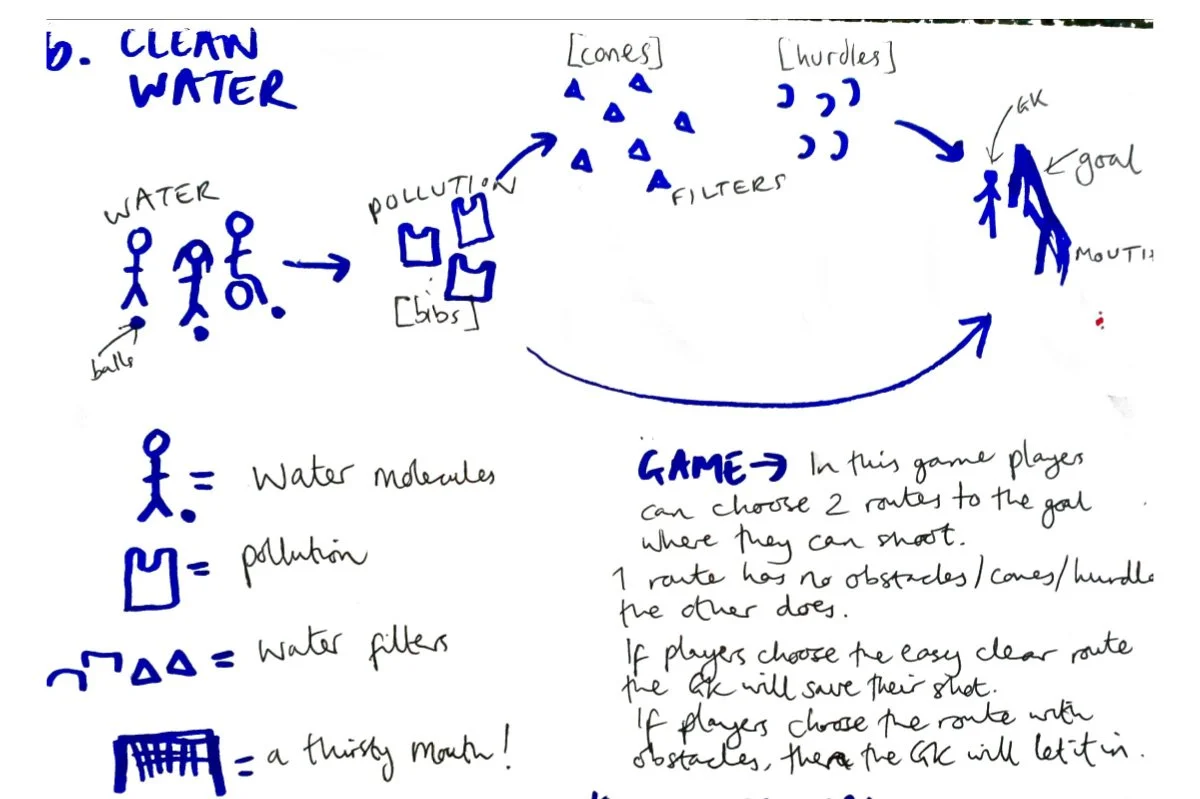 b. CLEAN
WATER
[cones]
[hurdles]
GK
goal
WATER
POLLUTION
FILTERS
MOUTH
[bibs]
balls
= Water molecules
= pollution
= water filters
= a thirsty mouth!
GAME → In this game players
can choose 2 routes to the goal
where they can shoot.
1 route has no obstacles/cones/hurdle
the other does.
If players choose the easy clear route
the GK will save their shot.
If players choose the route with
obstacles, then the GK will let it in.